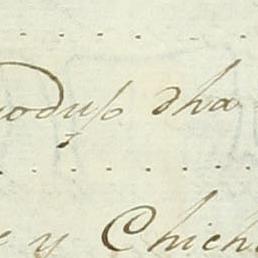 produjo dha
y Chich